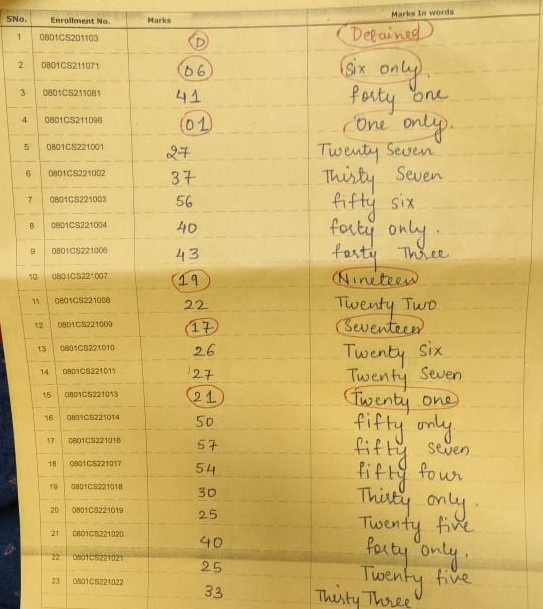 SNo. Enrollment No. Marks Marks In words
1 0801CS201103 D Detained
2 0801CS211071 06 Six only.
3 0801CS211081 41 forty one
4 0801CS211098 01 One only.
5 0801CS221001 27 Twenty Seven
6 0801CS221002 37 Thirty Seven
7 0801CS221003 56 fifty six
8 0801CS221004 40 forty only.
9 0801CS221006 43 forty Three
10 0801CS221007 19 Nineteen
11 0801CS221008 22 Twenty Two
12 0801CS221009 17 Seventeen
13 0801CS221010 26 Twenty Six
14 0801CS221011 27 Twenty Seven
15 0801CS221013 21 Twenty one
16 0801CS221014 50 fifty only
17 0801CS221016 57 fifty seven
18 0801CS221017 54 fifty four
19 0801CS221018 30 Thirty only.
20 0801CS221019 25 Twenty five
21 0801CS221020 40 forty only.
22 0801CS221021 25 Twenty five
23 0801CS221022 33 Thirty Three